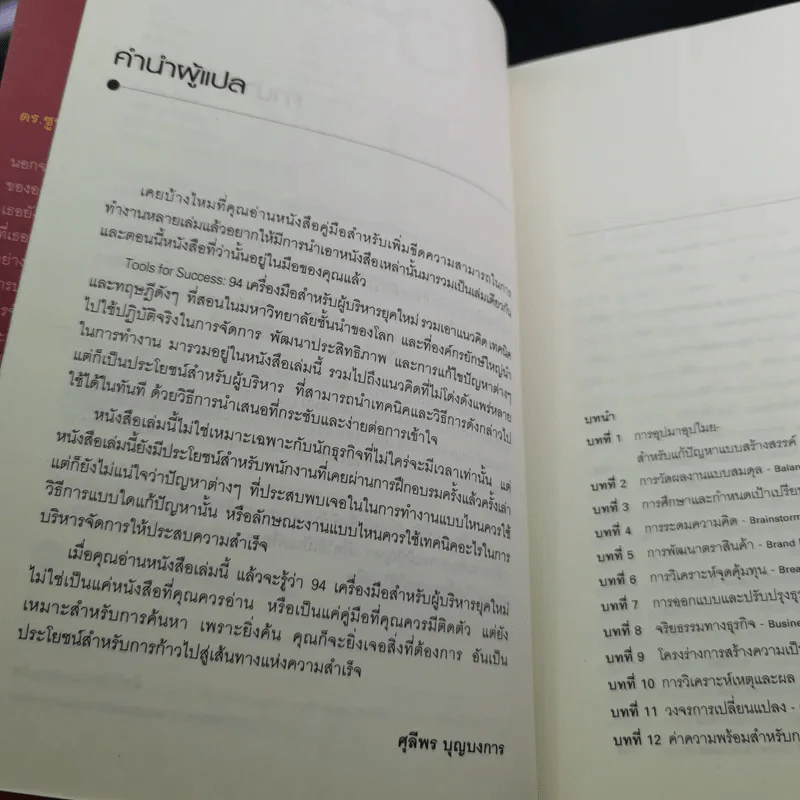 ดร.ชู
นอกจ
ของอ
เธอยัง
ที่เธอ
อย่าง
คำนำผู้แปล
เคยบ้างไหมที่คุณอ่านหนังสือคู่มือสำหรับเพิ่มขีดความสามารถในการ
ทำงานหลายเล่มแล้วอยากให้มีการนำเอาหนังสือเหล่านั้นมารวมเป็นเล่มเดียวกัน
และตอนนี้หนังสือที่ว่านั้นอยู่ในมือของคุณแล้ว
Tools for Success: 94 เครื่องมือสำหรับผู้บริหารยุคใหม่ รวมเอาแนวคิด เทคนิค
และทฤษฎีดังๆ ที่สอนในมหาวิทยาลัยชั้นนำของโลก และที่องค์กรยักษ์ใหญ่นำ
ไปใช้ปฏิบัติจริงในการจัดการ พัฒนาประสิทธิภาพ และการแก้ไขปัญหาต่างๆ
ในการทำงาน มารวมอยู่ในหนังสือเล่มนี้ รวมไปถึงแนวคิดที่ไม่โด่งดังแพร่หลาย
แต่ก็เป็นประโยชน์สำหรับผู้บริหาร ที่สามารถนำเทคนิคและวิธีการดังกล่าวไป
ใช้ได้ในทันที ด้วยวิธีการนำเสนอที่กระชับและง่ายต่อการเข้าใจ
หนังสือเล่มนี้ไม่ใช่เหมาะเฉพาะกับนักธุรกิจที่ไม่ใคร่จะมีเวลาเท่านั้น แต่
หนังสือเล่มนี้ยังมีประโยชน์สำหรับพนักงานที่เคยผ่านการฝึกอบรมครั้งแล้วครั้งเล่า
แต่ก็ยังไม่แน่ใจว่าปัญหาต่างๆ ที่ประสบพบเจอในในการทำงานแบบไหนควรใช้
วิธีการแบบใดแก้ปัญหานั้น หรือลักษณะงานแบบไหนควรใช้เทคนิคอะไรในการ
บริหารจัดการให้ประสบความสำเร็จ
เมื่อคุณอ่านหนังสือเล่มนี้ แล้วจะรู้ว่า 94 เครื่องมือสำหรับผู้บริหารยุคใหม่
ไม่ใช่เป็นแค่หนังสือที่คุณควรอ่าน หรือเป็นแค่คู่มือที่คุณควรมีติดตัว แต่ยัง
เหมาะสำหรับการค้นหา เพราะยิ่งค้น คุณก็จะยิ่งเจอสิ่งที่ต้องการ อันเป็น
ประโยชน์สำหรับการก้าวไปสู่เส้นทางแห่งความสำเร็จ
ศุลีพร บุญบงการ
บทนำ
บทที่ 1 การอุปมาอุปไมย-
สำหรับแก้ปัญหาแบบสร้างสรรค์
บทที่ 2 การวัดผลงานแบบสมดุล - Balan
บทที่ 3 การศึกษาและกำหนดเป้าเปรีย
บทที่ 4 การระดมความคิด - Brainstorm
บทที่ 5 การพัฒนาตราสินค้า - Brand
บทที่ 6 การวิเคราะห์จุดคุ้มทุน - Brea
บทที่ 7 การออกแบบและปรับปรุงธุร
บทที่ 8 จริยธรรมทางธุรกิจ - Busine
บทที่ 9 โครงร่างการสร้างความเป็
บทที่ 10 การวิเคราะห์เหตุและผล
บทที่ 11 วงจรการเปลี่ยนแปลง -
บทที่ 12 ค่าความพร้อมสำหรับก